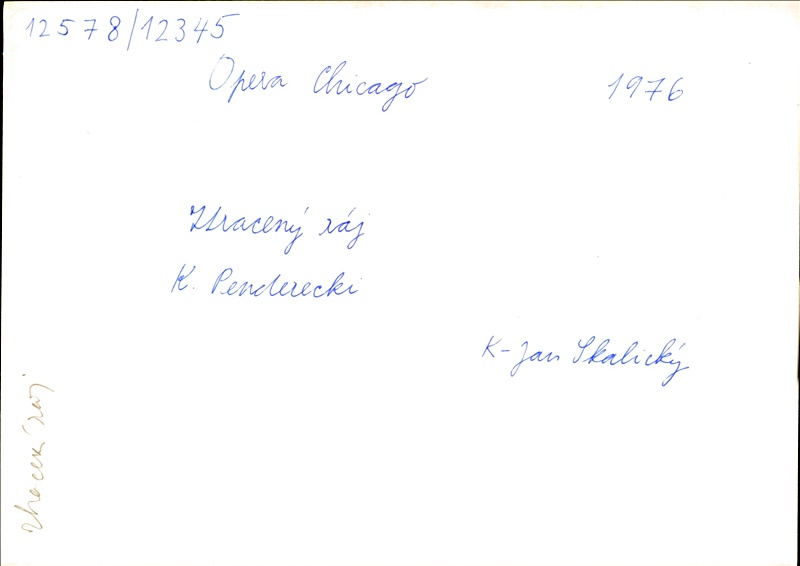 12578/12345
Opera Chicago 1976
Ztracený ráj
K. Penderecki
K-Jan Skalický
ráj